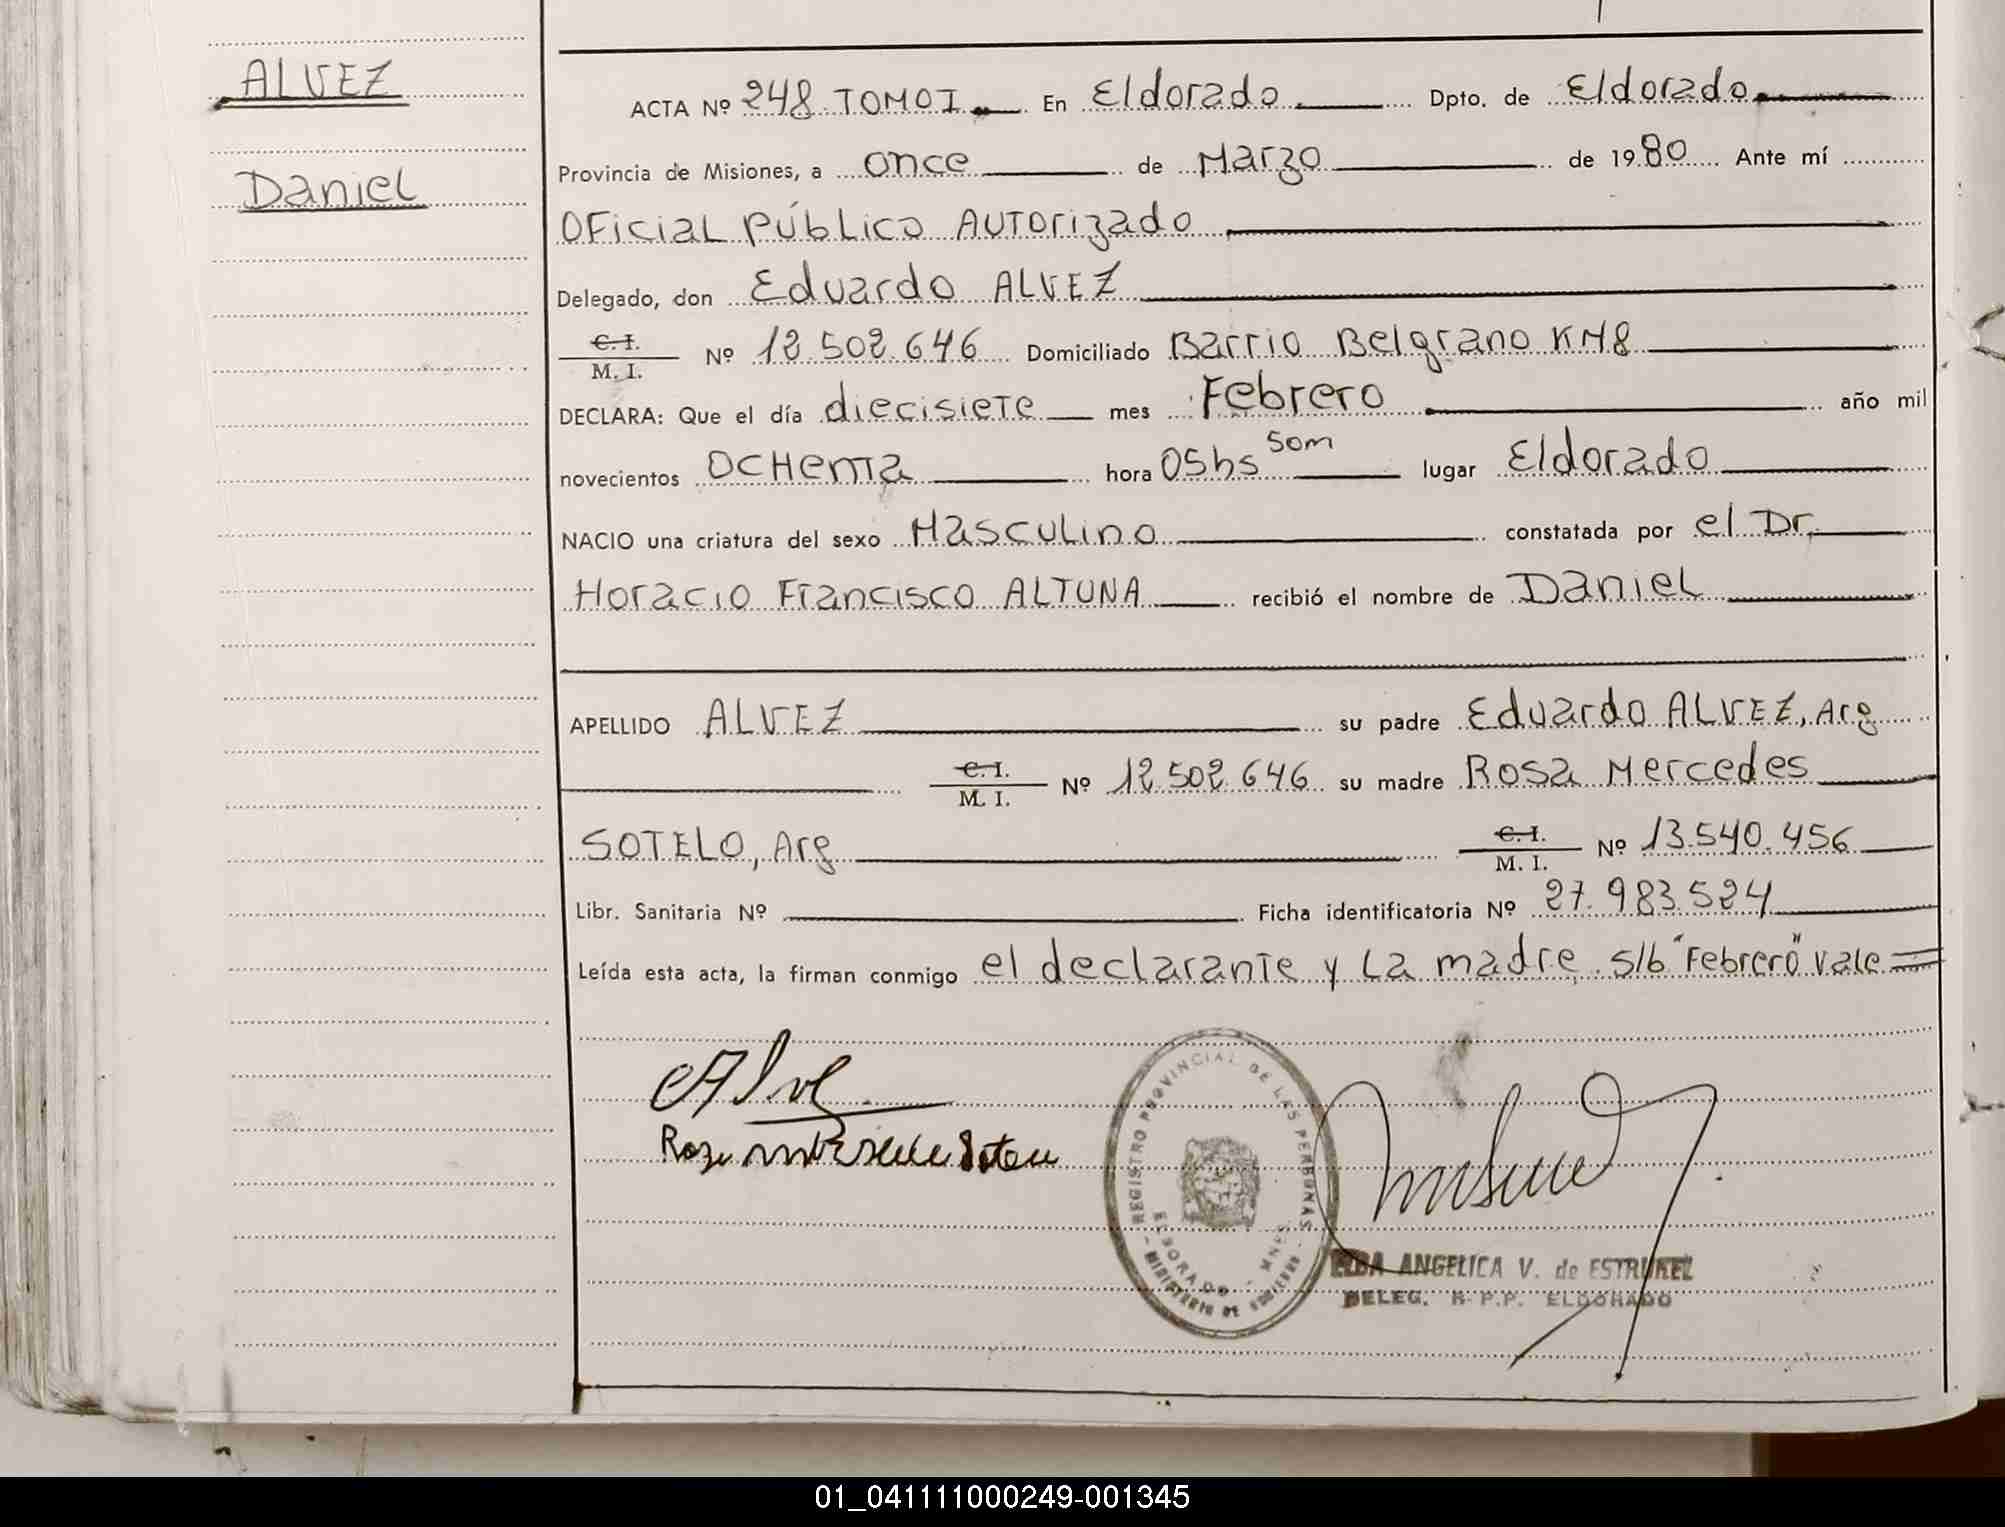 ALVEZ
Daniel
ACTA Nº 248 TOMO I En Eldorado Dpto. de Eldorado
Provincia de Misiones, a once de Marzo de 1980 Ante mí
OFicial Público Autorizado
Delegado, don Eduardo ALVEZ
C. I.
M. I. Nº 12.502.646 Domiciliado Barrio Belgrano KM8
DECLARA: Que el día diecisiete mes Febrero año mil
novecientos OCHenta hora 05hs 50m lugar Eldorado
NACIO una criatura del sexo Masculino constatada por el Dr.
Horacio Francisco ALTUNA recibió el nombre de Daniel
APELLIDO ALVEZ su padre Eduardo ALVEZ, Arg
C. I.
M. I. Nº 12.502.646 su madre Rosa Mercedes
SOTELO, Arg C. I.
M. I. Nº 13.540.456
Libr. Sanitaria Nº Ficha identificatoria Nº 27.983.524
Leída esta acta, la firman conmigo el declarante y La madre. s/b "Febrero" Vale
REGISTRO PROVINCIAL DE LAS PERSONAS
ELDORADO - MNES
MINISTERIO DE GOBIERNO
ELBA ANGELICA V. de ESTRUKEL
DELEG. R.P.P. ELDORADO
01_041111000249-001345